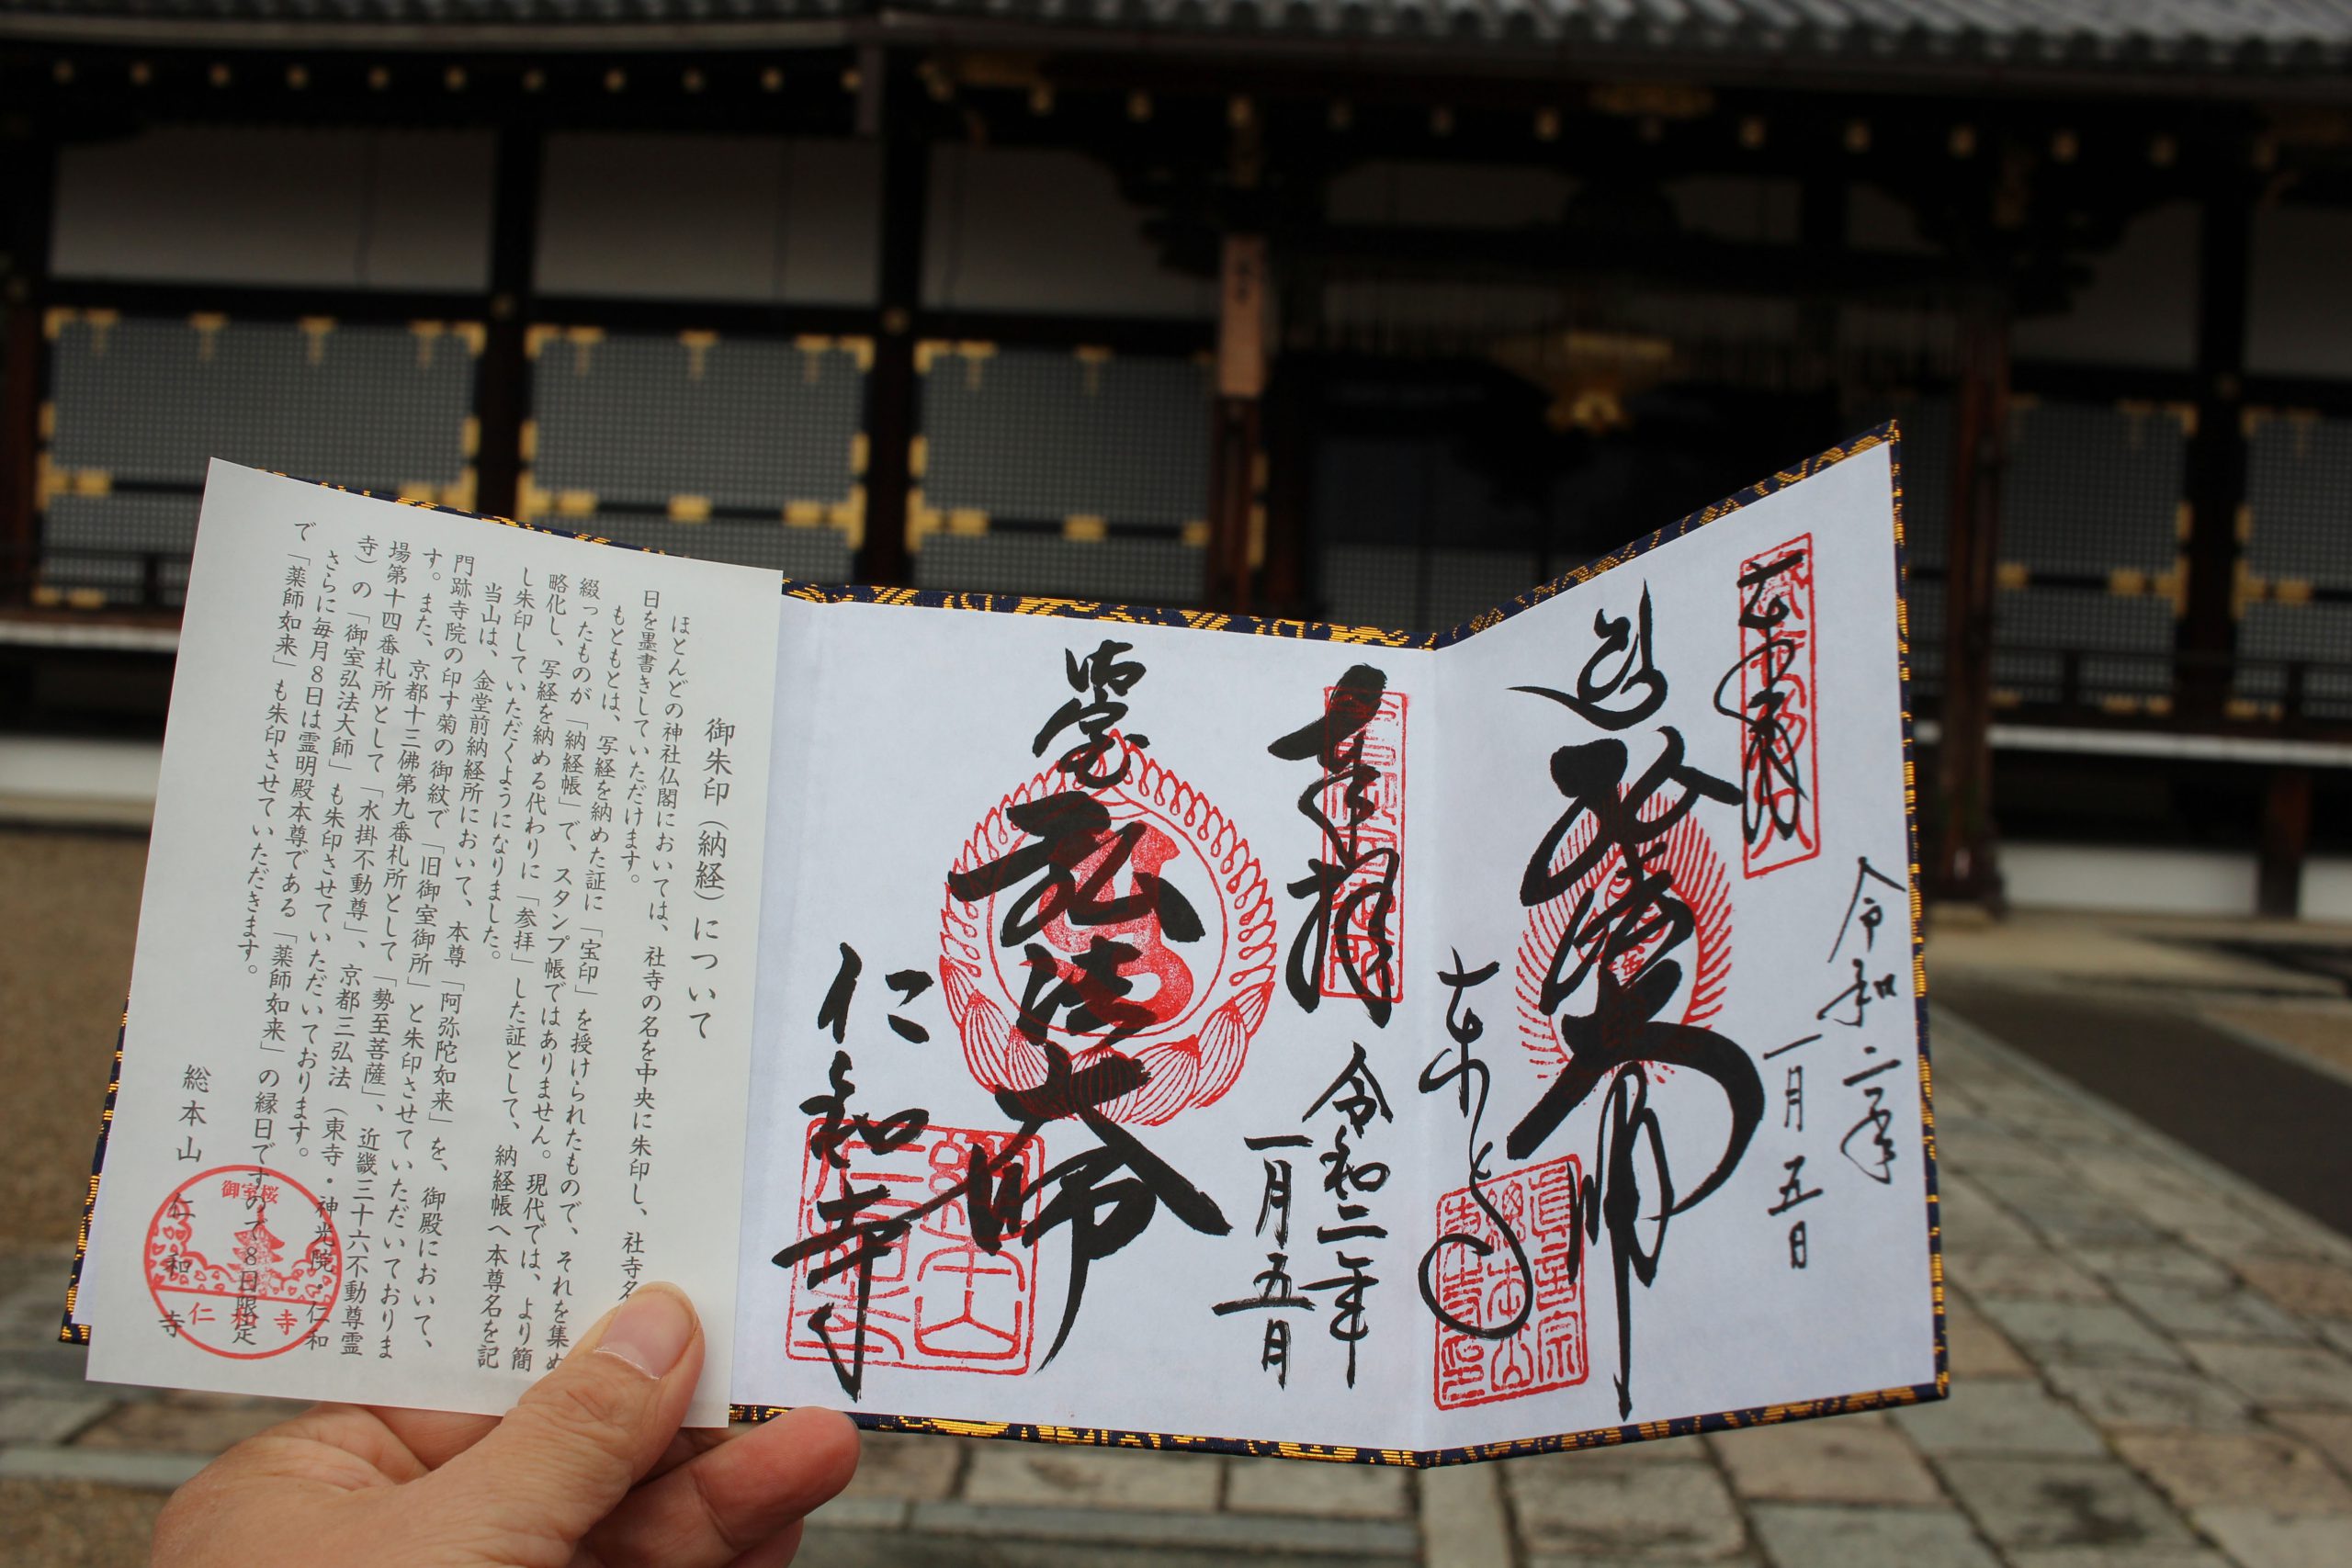 令和二年
一月五日
奉拝
令和二年
一月五日
御室
弘法大師
仁和寺
御朱印(納経)について
ほとんどの神社仏閣においては、社寺の名を中央に朱印し、社寺名
日を墨書きしていただけます。
もともとは、写経を納めた証に「宝印」を授けられたもので、それを集め
綴ったものが「納経帳」で、スタンプ帳ではありません。現代では、より簡
略化し、写経を納める代わりに「参拝」した証として、納経帳へ本尊名を記
し朱印していただくようになりました。
当山は、金堂前納経所において、本尊「阿弥陀如来」を、御殿において、
門跡寺院の印す菊の御紋で「旧御室御所」と朱印させていただいておりま
す。また、京都十三佛第九番札所として「勢至菩薩」、近畿三十六不動尊霊
場第十四番札所として「水掛不動尊」、京都三弘法(東寺・神光院・仁和
寺)の「御室弘法大師」も朱印させていただいております。
さらに毎月8日は霊明殿本尊である「薬師如来」の縁日ですので8日限定
で「薬師如来」も朱印させていただきます。
総本山 仁和寺
御室桜
仁和寺